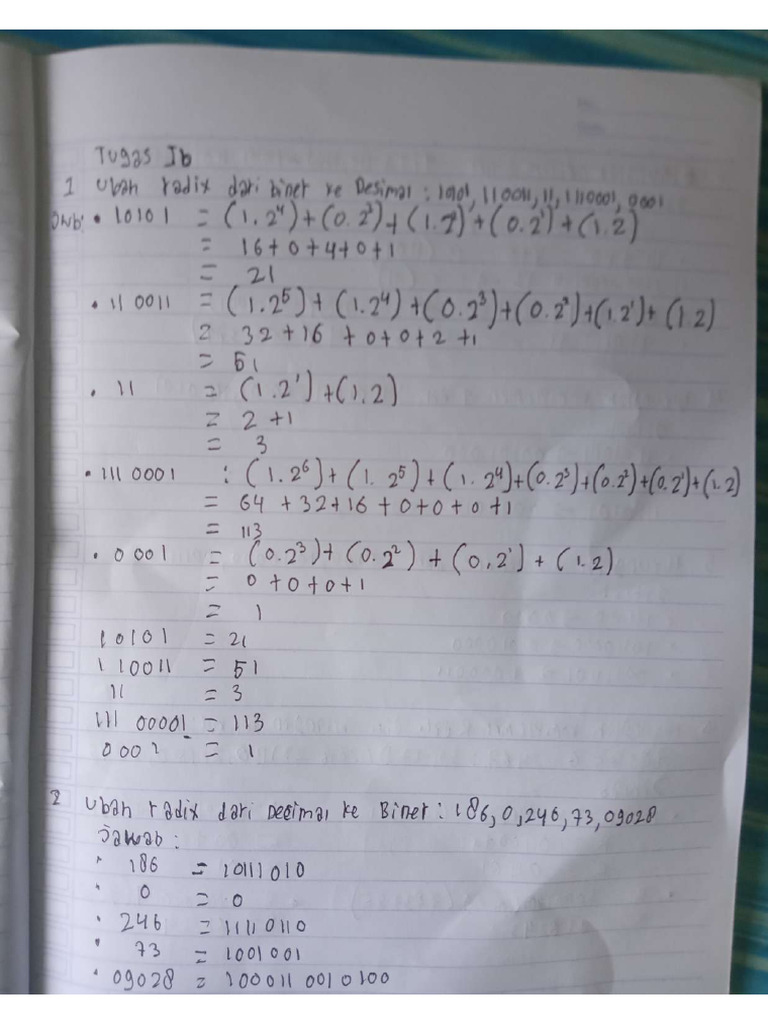 Tugas Ib
1 Ubah radix dari biner ke Desimal : 10101, 110011, 11, 1110001, 0001
Jwb: • 10101 = (1.2⁴)+(0.2³)+(1.2²)+(0.2¹)+(1.2)
= 16+0+4+0+1
= 21
• 110011 = (1.2⁵)+(1.2⁴)+(0.2³)+(0.2²)+(1.2¹)+(1.2)
= 32+16+0+0+2+1
= 51
• 11 = (1.2¹)+(1.2)
= 2+1
= 3
• 1110001 : (1.2⁶)+(1.2⁵)+(1.2⁴)+(0.2³)+(0.2²)+(0.2¹)+(1.2)
= 64+32+16+0+0+0+1
= 113
• 0001 = (0.2³)+(0.2²)+(0,2¹)+(1.2)
= 0+0+0+1
= 1
10101 = 21
110011 = 51
11 = 3
11100001 = 113
0001 = 1
2 Ubah radix dari Decimal ke Biner : 186, 0, 246, 73, 09028
Jawab :
• 186 = 10111010
• 0 = 0
• 246 = 11110110
• 73 = 1001001
• 09028 = 1000110010100